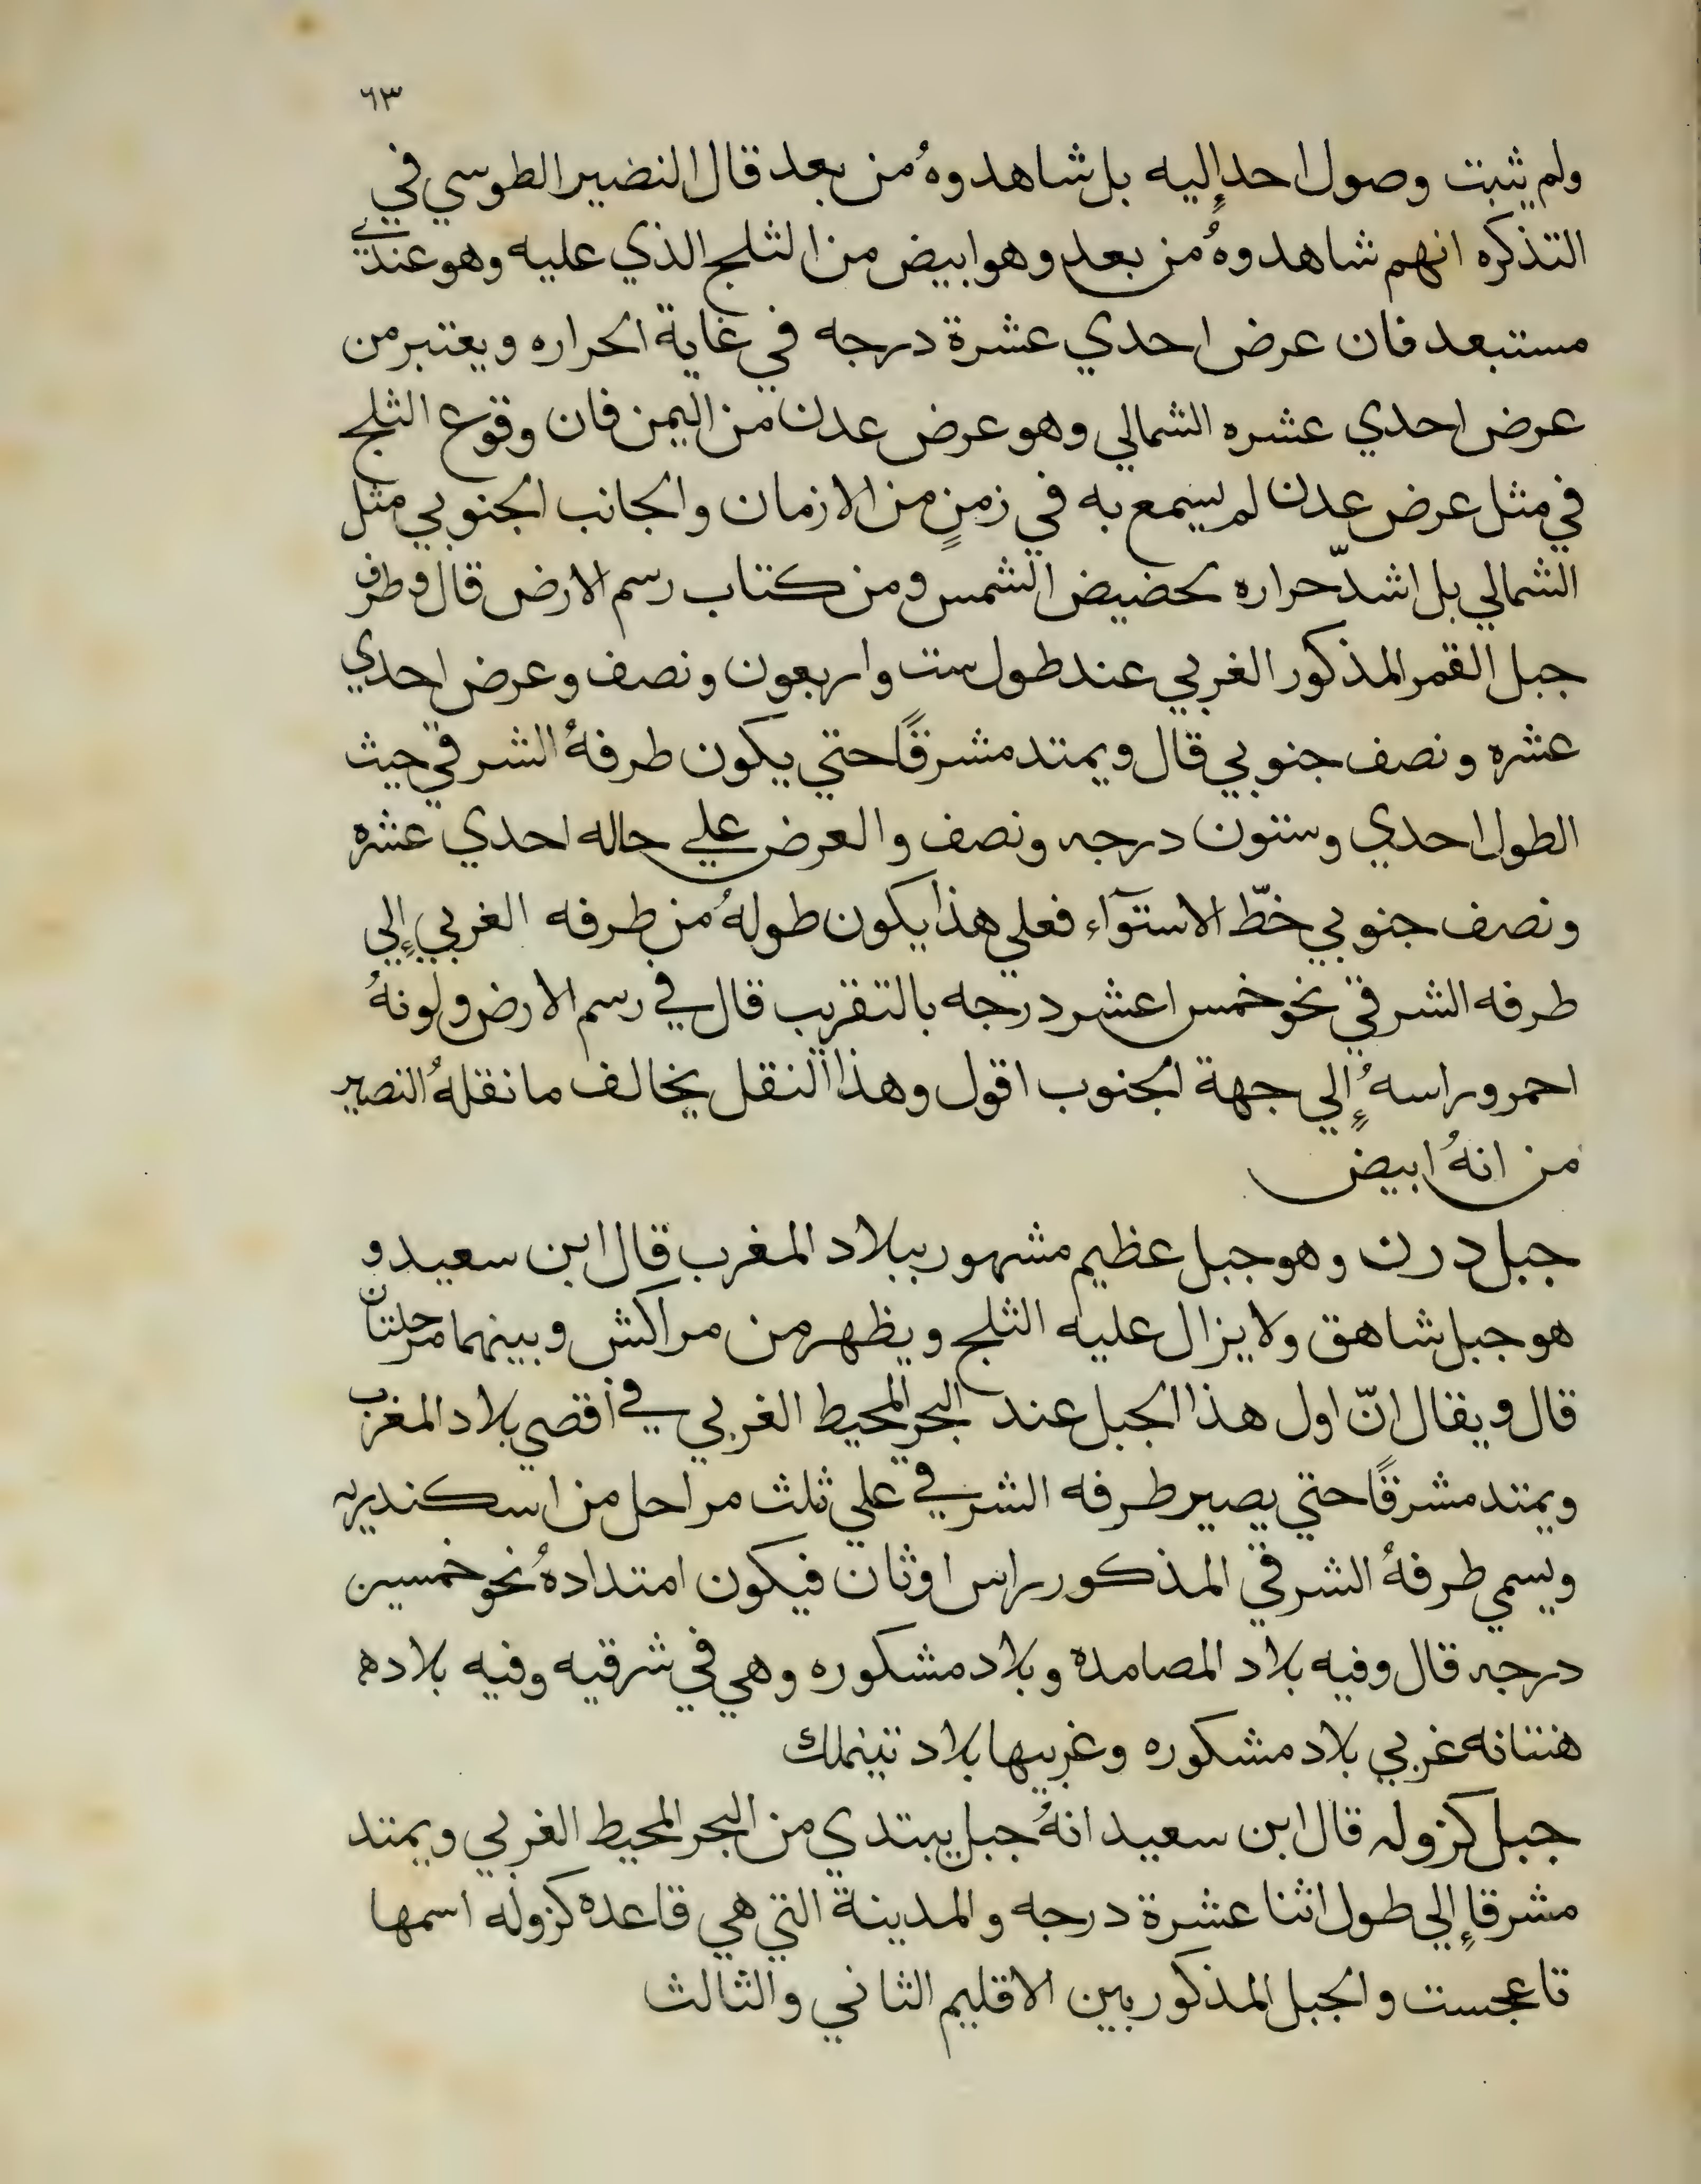 ٦٣
ولم يثبت وصول احد إليه بل شاهدوهُ من بعد قال النضير الطوسي في
التذكره انهم شاهدوهُ من بعد وهو ابيض من الثلج الذي عليه وهو عندي
مستبعد فان عرض احدي عشرة درجه في غاية الحراره ويعتبر من
عرض احدي عشره الشمالي وهو عرض عدن من اليمن فان وقوع الثلج
في مثل عرض عدن لم يسمع به في زمنٍ من الازمان والجانب الجنوبي مثل
الشمالي بل اشدّ حراره لحضيض الشمس ومن كتاب رسم الارض قال وطرف
جبل القمر المذكور الغربي عند طول ست واربعون ونصف وعرض احدي
عشره ونصف جنوبي قال ويمتد مشرقًا حتي يكون طرفهُ الشرقي حيث
الطول احدي وستون درجه ونصف والعرض علي حاله احدي عشره
ونصف جنوبي خطّ الاستوآء فعلي هذا يكون طولهُ من طرفه الغربي إلي
طرفه الشرقي نحو خمس اعشر درجه بالتقريب قال في رسم الارض ولونهُ
احمر وراسهُ إلي جهة الجنوب اقول وهذا النقل يخالف ما نقلهُ النصير
من انهُ ابيض
جبل درن وهو جبل عظيم مشهور ببلاد المغرب قال ابن سعيد و
هو جبل شاهق ولا يزال عليه الثلج ويظهر من مراكش وبينهما مرحلتان
قال ويقال انّ اول هذا الجبل عند البحر المحيط الغربي في أقصي بلاد المغرب
ويمتد مشرقًا حتي يصير طرفه الشرقي علي ثلث مراحل من اسكندريه
ويسمي طرفهُ الشرقي المذكور راس اوثان فيكون امتدادهُ نحو خمسين
درجه قال وفيه بلاد المصامده وبلاد مشكوره وهي في شرقيه وفيه بلاده
هنتانه غربي بلاد مشكوره وغربيها بلاد تينملك
جبل كزوله قال ابن سعيد انهُ جبل يبتدي من البحر المحيط الغربي ويمتد
مشرقا إلي طول اثنا عشرة درجه والمدينة التي هي قاعده كزوله اسمها
تاعجست والجبل المذكور بين الاقليم الثاني والثالث